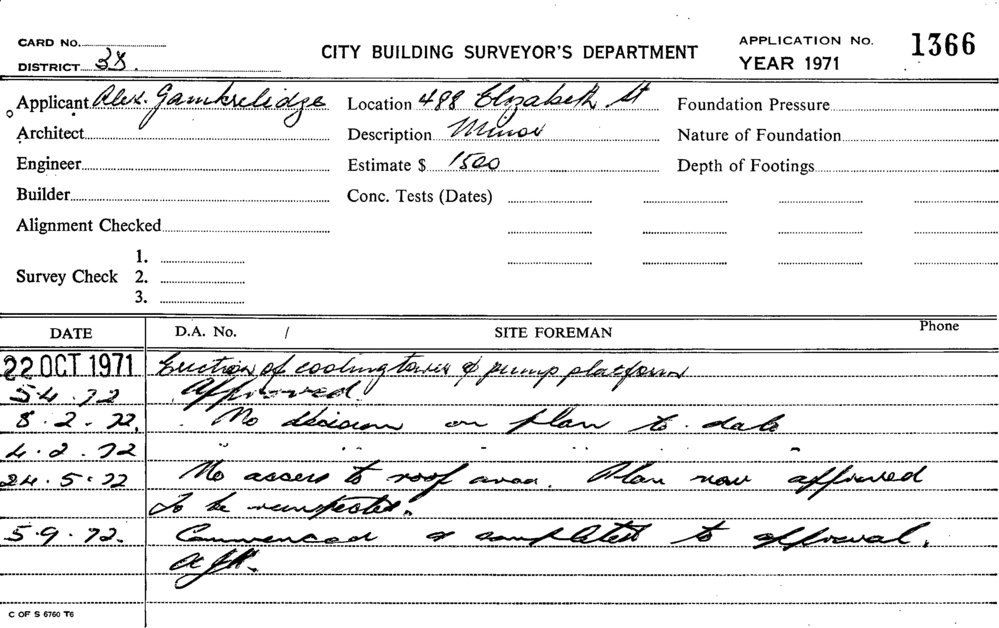 CARD No.
DISTRICT 38.
CITY BUILDING SURVEYOR'S DEPARTMENT
APPLICATION No. 1366
YEAR 1971
Applicant Alex. Gamkrelidge
Location 488 Elizabeth St
Foundation Pressure
Architect
Description Minor
Nature of Foundation
Engineer
Estimate $ 1500
Depth of Footings
Builder
Conc. Tests (Dates)
Alignment Checked
Survey Check 1.
2.
3.
DATE D.A. No. / SITE FOREMAN Phone
22 OCT 1971 Erection of cooling tower & pump platform
5.4.72 Approved.
8.2.72. No decision on plan to date
4.2.72 " " " " "
24.5.72 No access to roof area. Plan now approved
To be reinspected.
5.9.72. Commenced & completed to approval.
C OF S 6760 T6